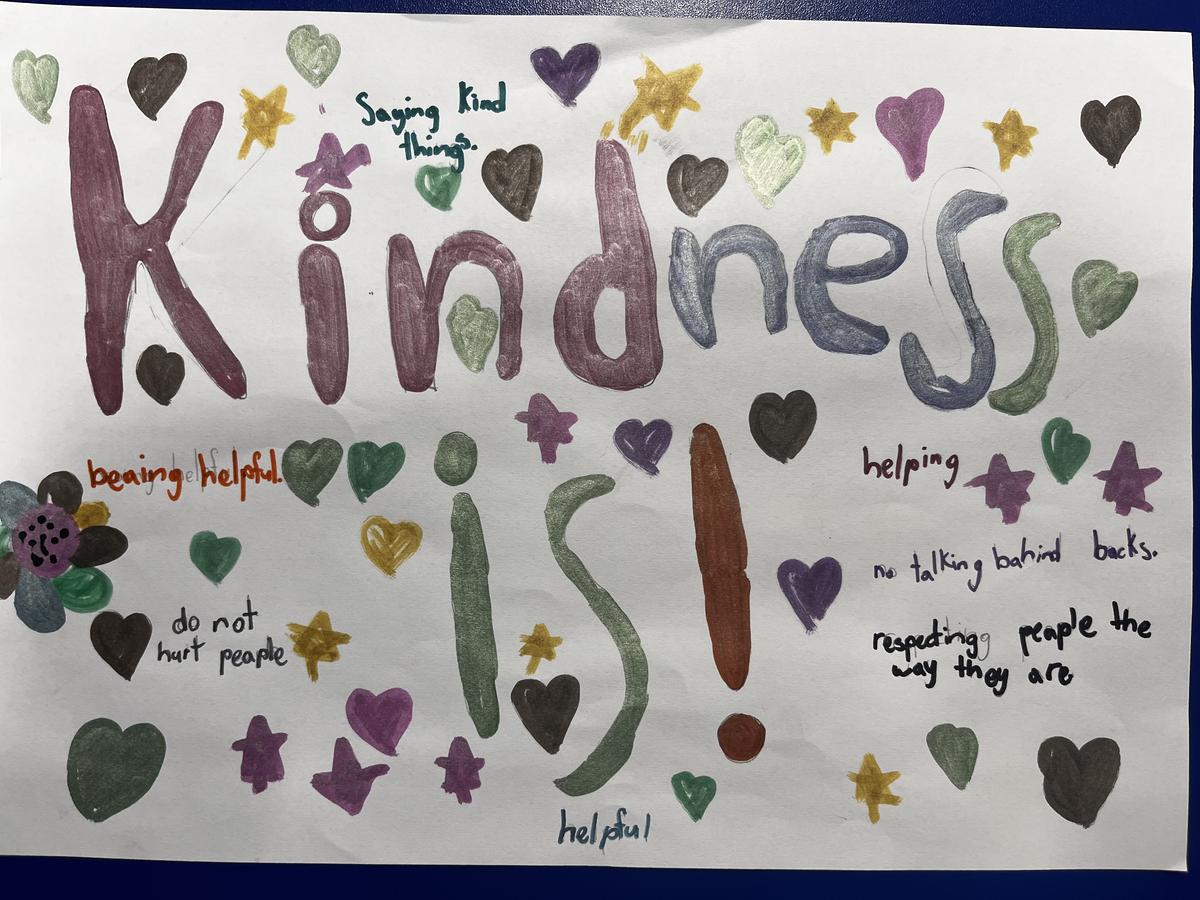 Saying kind
things.
Kindness
beaing helpful.
is!
helping
no talking bahind backs.
do not
hurt peaple
respecting peaple the
way they are
helpful